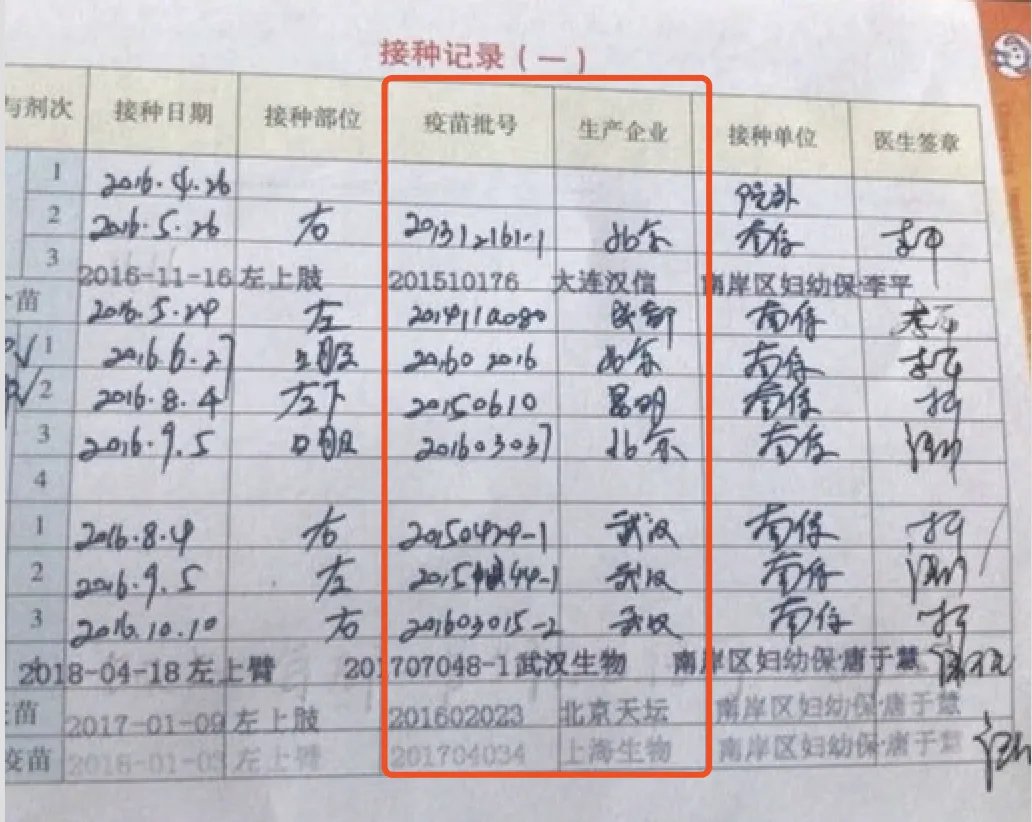 接种记录(一)
与剂次 接种日期 接种部位 疫苗批号 生产企业 接种单位 医生签章
1 2016.4.26 院外
2 2016.5.26 右 201312161-1 北京 南保 李平
3 2016-11-16 左上肢 201510176 大连汉信 南岸区妇幼保·李平
苗 2016.5.24 左 成都 南保
1 2016.6.27 201602016 北京 南保
2 2016.8.4 左下 20150610 昆明 南保
3 2016.9.5 口服 201603037 北京 南保
4
1 2016.8.4 右 20150424-1 武汉 南保
2 2016.9.5 左 武汉 南保
3 2016.10.10 右 201603015-2 武汉 南保
2018-04-18 左上臂 201707048-1 武汉生物 南岸区妇幼保·唐于慧
苗 2017-01-09 左上肢 201602023 北京天坛 南岸区妇幼保·唐于慧
疫苗 2018-01-03 左上臂 201704034 上海生物 南岸区妇幼保·唐于慧